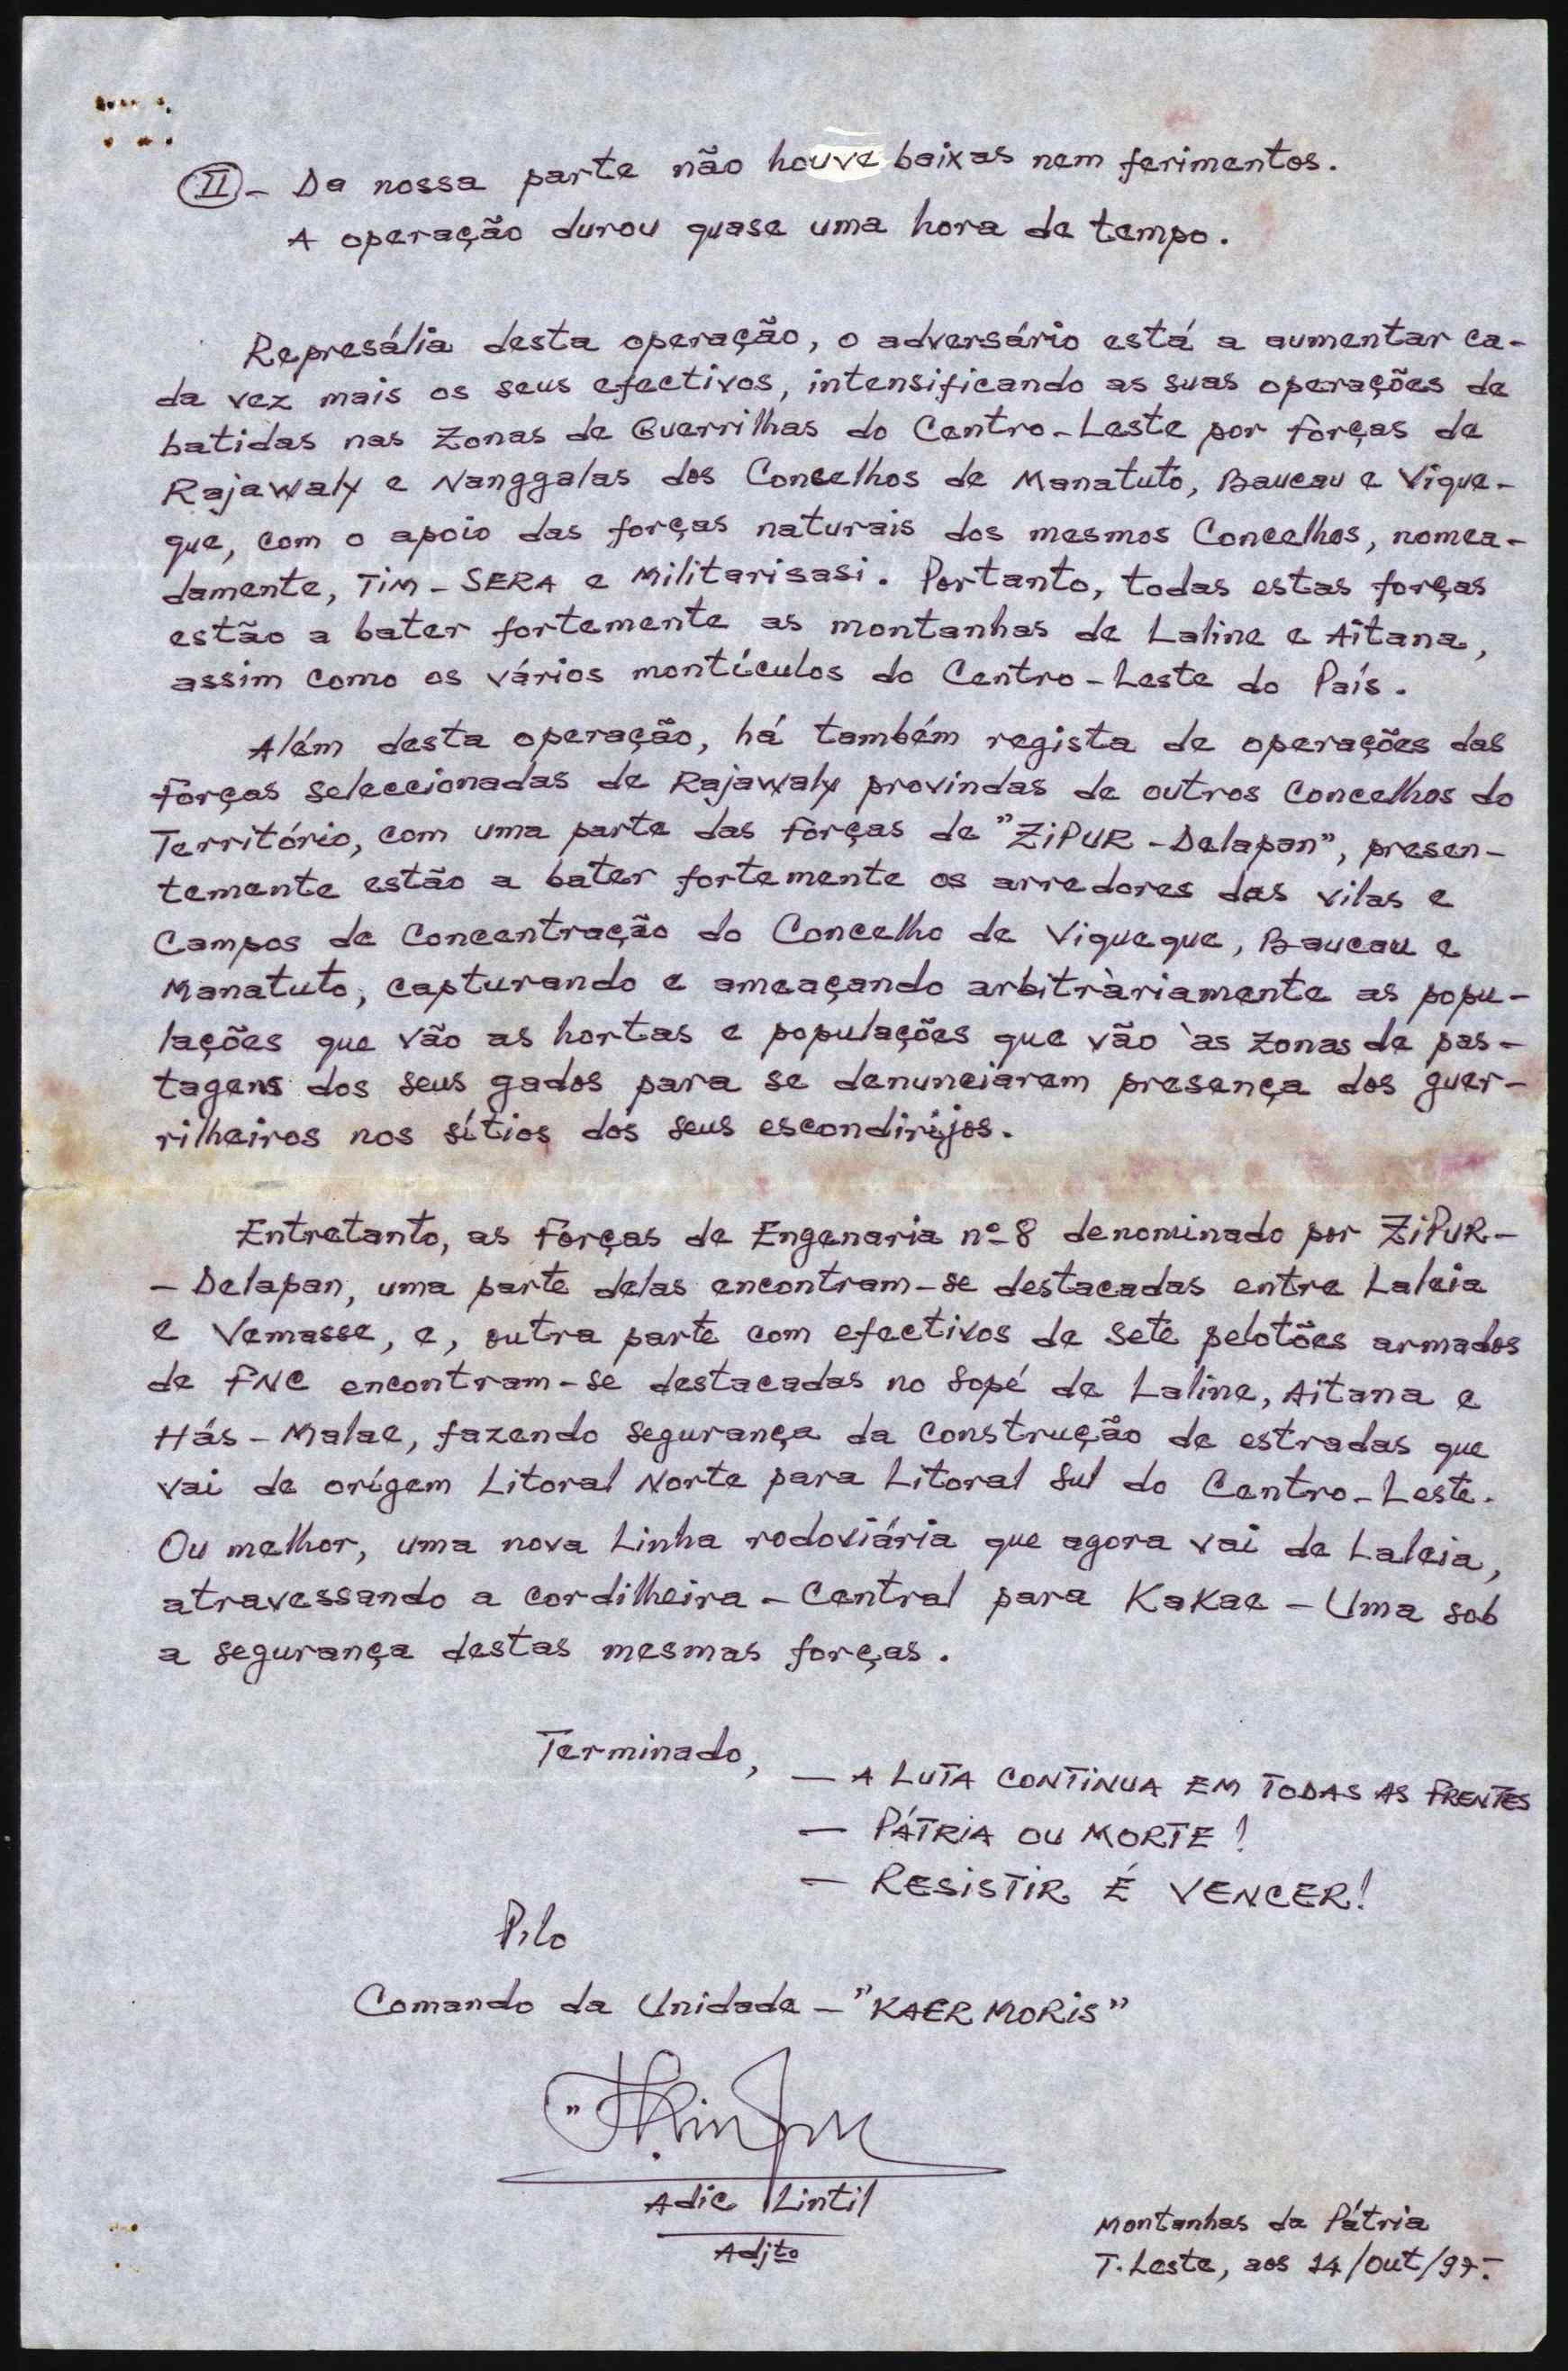 II - Da nossa parte não houve baixas nem ferimentos.
A operação durou quase uma hora de tempo.
Represália desta operação, o adversário está a aumentar ca-
da vez mais os seus efectivos, intensificando as suas operações de
batidas nas Zonas de Guerrilhas do Centro-Leste por forças de
Rajawaly e Nanggalas dos Concelhos de Manatuto, Baucau e Vique-
que, com o apoio das forças naturais dos mesmos Concelhos, nomea-
damente, TiM-SERA e Militarisasi. Portanto, todas estas forças
estão a bater fortemente as montanhas de Laline e Aitana,
assim como os vários montículos do Centro-Leste do País.
Além desta operação, há também regista de operações das
forças seleccionadas de Rajawaly provindas de outros Concelhos do
Território, com uma parte das forças de "ZiPUR-Delapan", presen-
temente estão a bater fortemente os arredores das vilas e
Campos de Concentração do Concelho de Viqueque, Baucau e
Manatuto, capturando e ameaçando arbitràriamente as popu-
lações que vão as hortas e populações que vão às zonas de pas-
tagens dos seus gados para se denunciarem presença dos guer-
rilheiros nos sítios dos seus escondirijos.
Entretanto, as forças de Engenaria nº 8 denominado por ZiPUR-
- Delapan, uma parte delas encontram-se destacadas entre Laleia
e Vemasse, e, outra parte com efectivos de sete pelotões armados
de FNC encontram-se destacadas no Sopé de Laline, Aitana e
Hás-Malae, fazendo segurança da construção de estradas que
vai de orígem Litoral Norte para Litoral Sul do Centro-Leste.
Ou melhor, uma nova Linha rodoviária que agora vai de Laleia,
atravessando a cordilheira-Central para Kakae-Uma sob
a segurança destas mesmas forças.
Terminado,
— A LUTA CONTiNUA EM TODAS AS FRENTES
— PÁTRiA OU MORTE!
— RESiSTiR É VENCER!
P'lo
Comando da Unidade - "KAER MORiS"
Adic Lintil
Adjto
Montanhas da Pátria
T. Leste, aos 14/Out/97.-